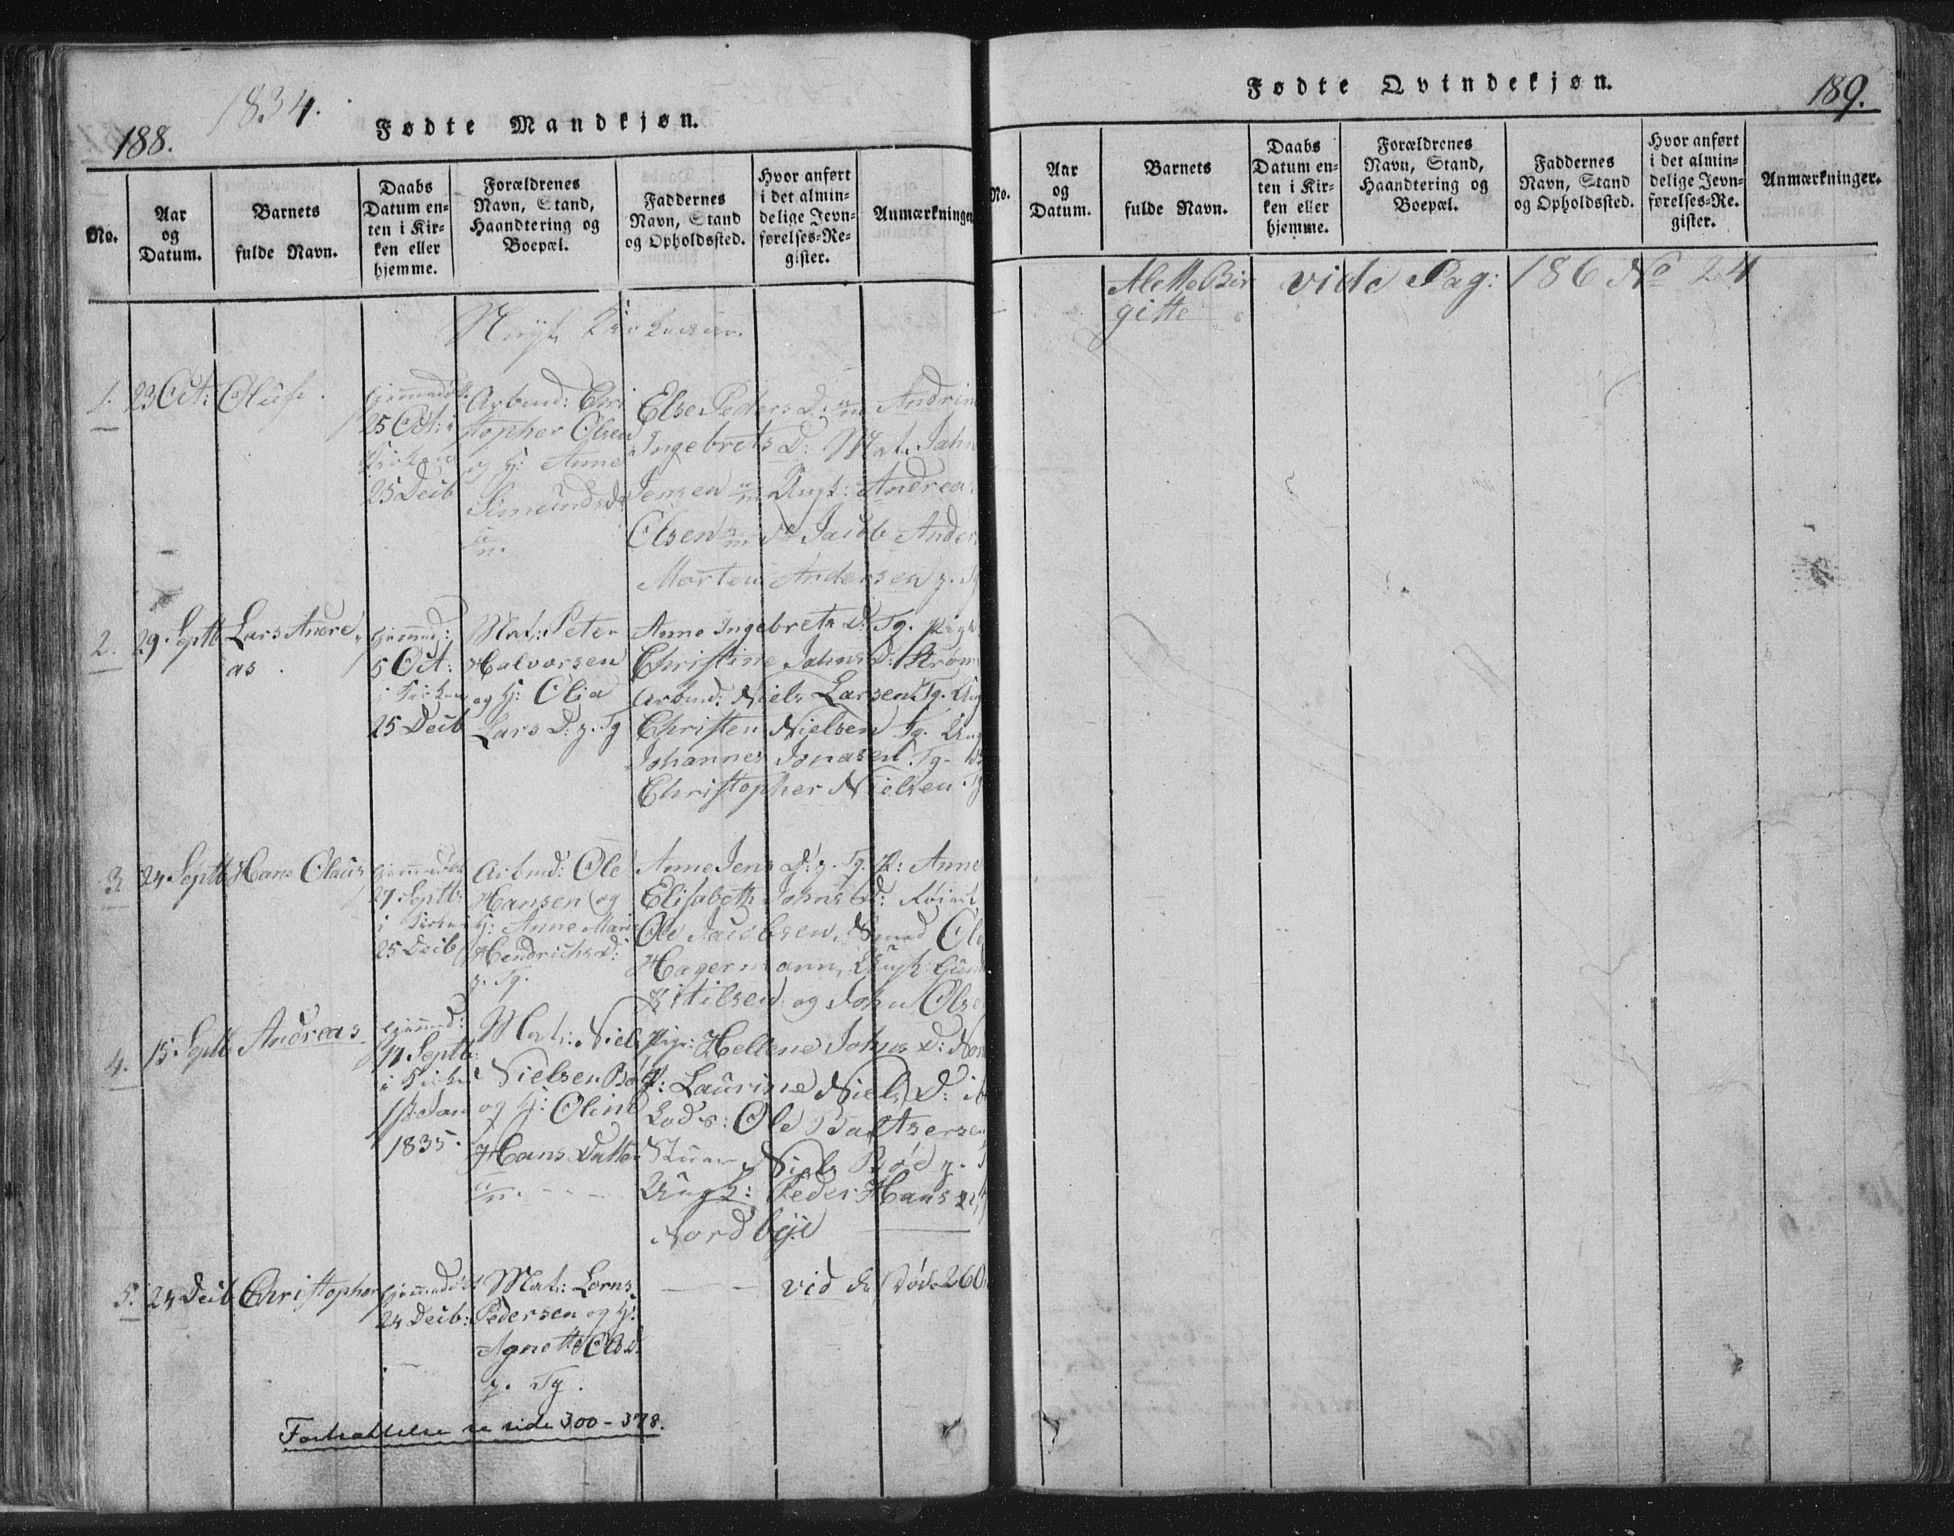 188.
1834.
Fødte Mandkjøn.
No.
Aar
og
Datum.
Barnets
fulde Navn.
Daabs
Datum en-
ten i Kir-
ken eller
hjemme.
Forældrenes
Navn, Stand,
Haandtering og
Boepæl.
Faddernes
Navn, Stand
og Opholdssted.
Hvor anført
i det almin-
delige Jevn-
førelses-Re-
gister.
Anmærkninger
1.
23 Oct:
25 Oct:
25 Decb
Arbmd: Chri
stopher Olsen
og H: Anne
Simunds D:
Else Peders D: Andrin
Ingebrets D: Mat. Jahn
Jensen Ungk: Andreas
Olsen Jacob Anders
Morten Andersen
2.
29. Septb
Lars Andre
as.
5 Oct:
i Kirken
25 Decb
Mat: Peter
Halvorsen
og H: Olia
Lars D: z. Tg
Anne Ingebrets D: Tg.
Christine Jahns D: Strøm
Arbmd: Niels Larsen Tg. Ung
Christen Nielsen Tg. Ung
Johannes Jonasen Tg.
Christopher Nielsen Tg
3.
24 Septb
Hans Olaus
27 Septb:
i Kirken
25 Decb
Arbmd: Ole
Hansen og
H: Anne Mari
Hendrichs D:
z. Tg.
Anne Jens D: z. Tg. P: Anne
Elisabeth Johns D:
Ole Jacobsen, Smed Ole
Hagermann, Ungk:
og John Olsen
4.
15 Septb
Andreas
17 Septb:
i Kirken
1ste Jan
1835.
Mat: Niels
Nielsen Bø
og H: Oline
Hans Datter
Pige: Hellene Johns D:
P: Laurine Niels D:
Lods: Ole Baltsersen
Niels Bøe z.
Ungk: Peder Hans
Nordbye
5.
24 Decb
Christopher
24 Decb:
Mat: Lorns
Pedersen og H:
Agnette Ols D.
z. Tg.
vid de Døde 260
Fortsættelse se side 300 - 378.
Fødte Qvindekjøn.
189.
No.
Aar
og
Datum.
Barnets
fulde Navn.
Daabs
Datum en-
ten i Kir-
ken eller
hjemme.
Forældrenes
Navn, Stand,
Haandtering og
Boepæl.
Faddernes
Navn, Stand
og Opholdssted.
Hvor anført
i det almin-
delige Jevn-
førelses-Re-
gister.
Anmærkninger.
Alette Bir
gitte
vide Pag: 186 No 24